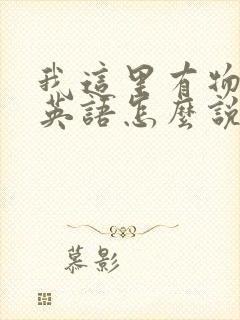 我這里有物
英語怎麼說
慕影